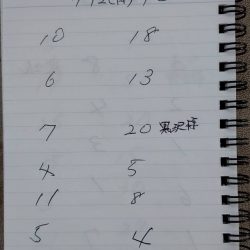 10 18
6 13
7 20 黒沢様
4 5
11 8
5 4